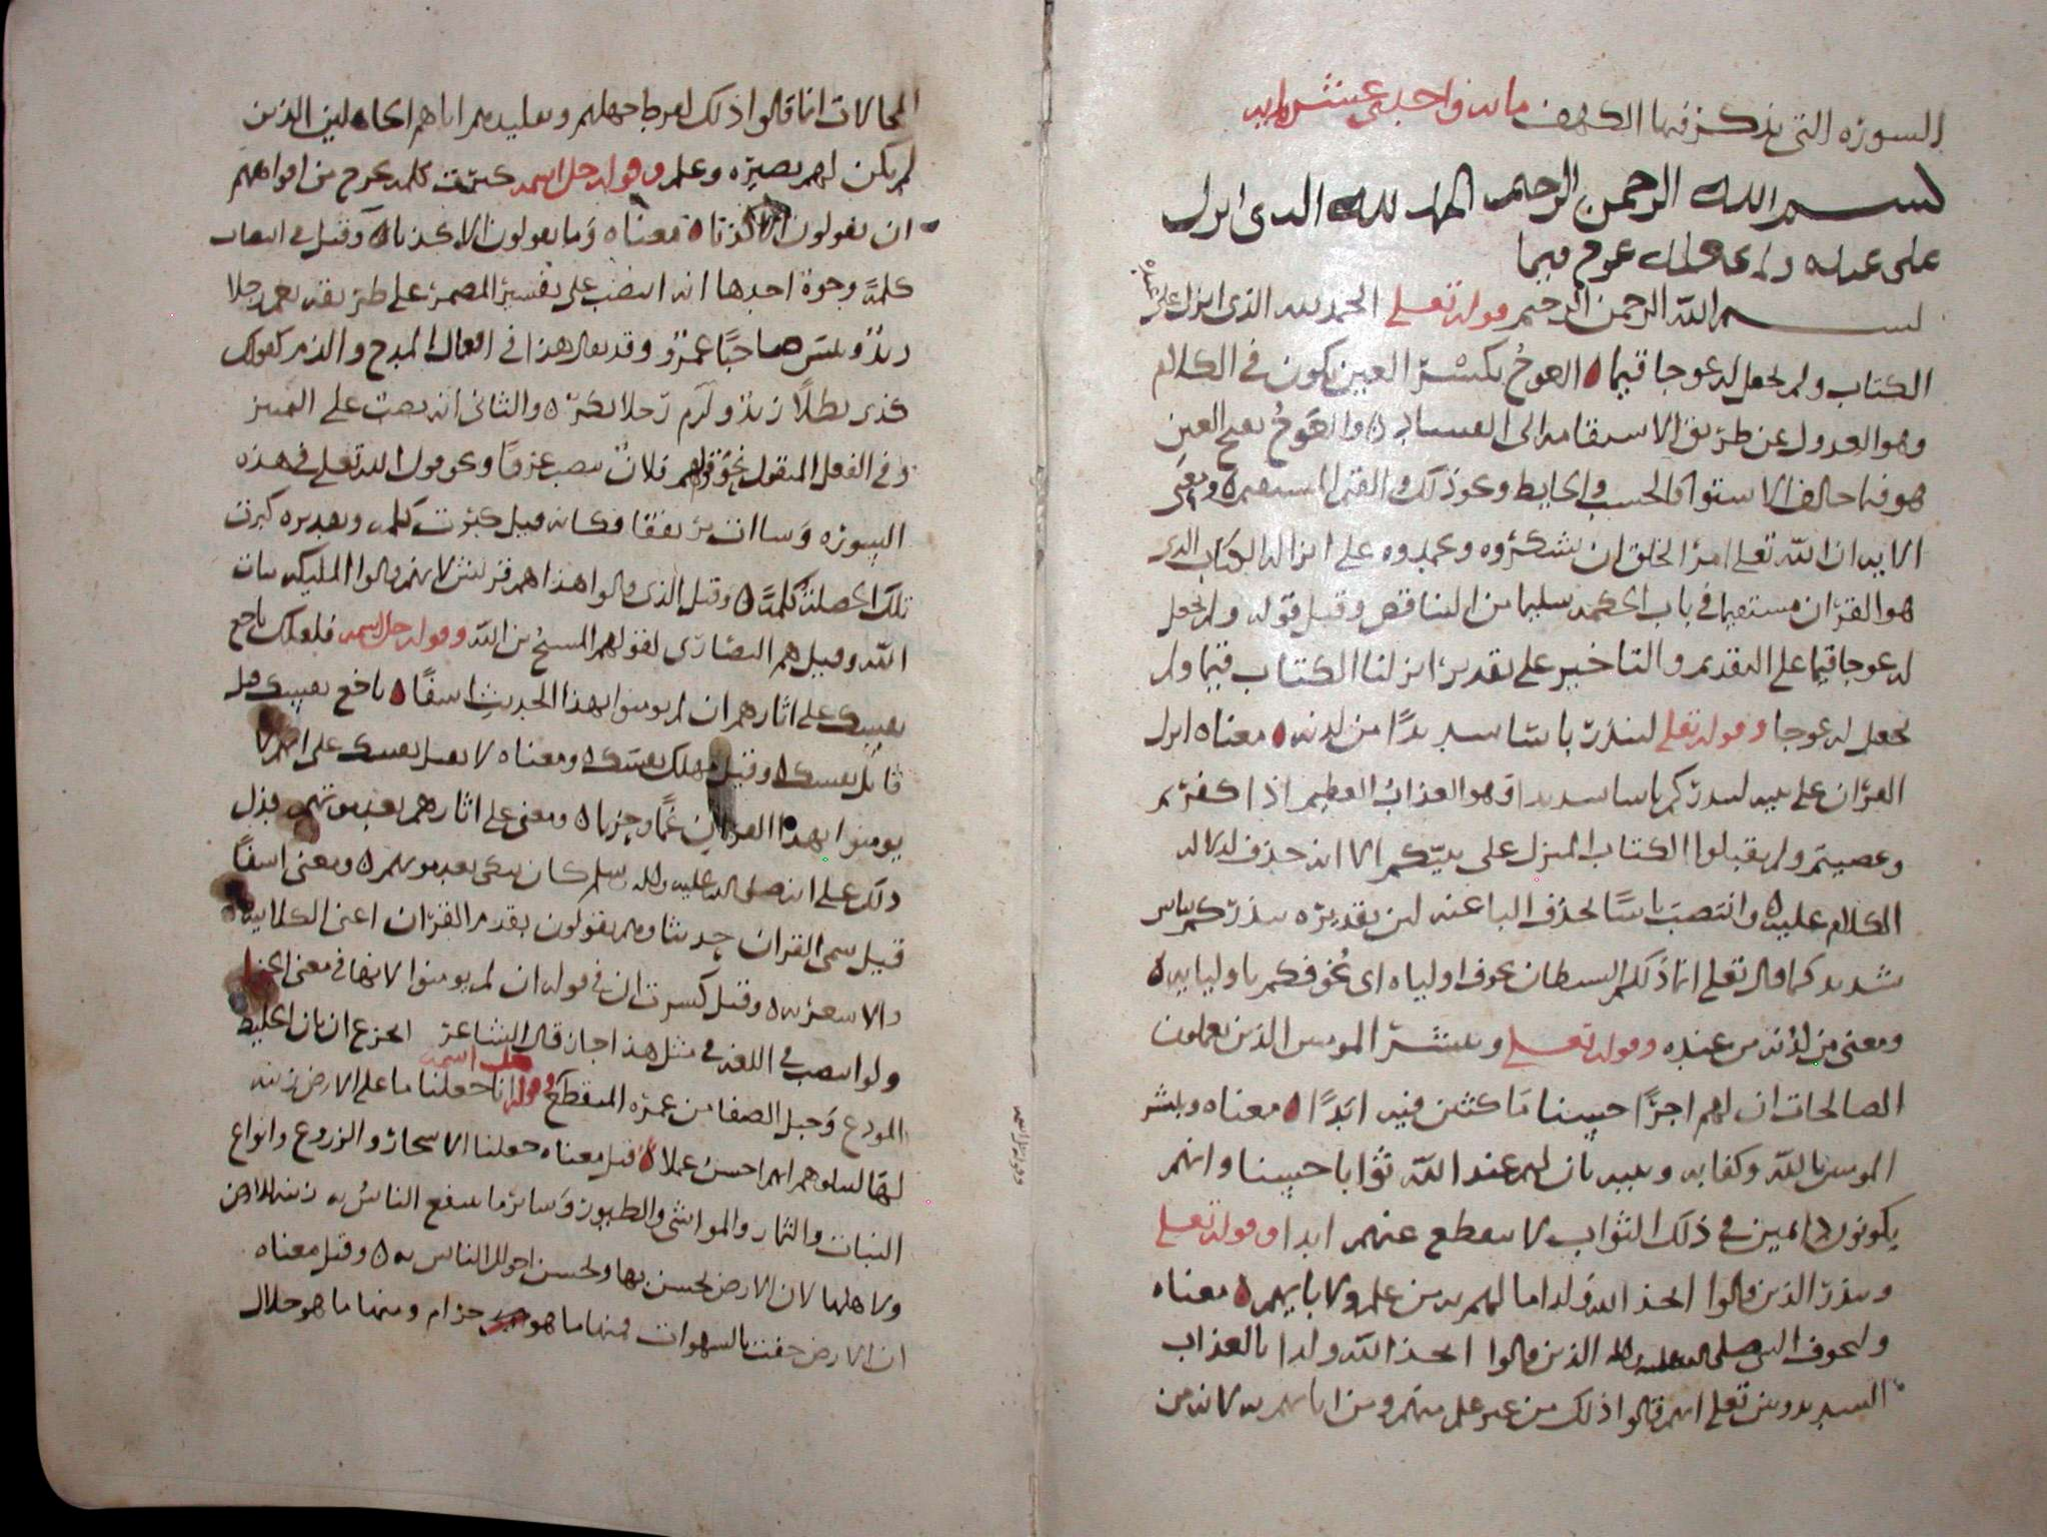 السورة التي يذكر فيها الكهف مائة واحدى عشر اية
بسم الله الرحمن الرحيم الحمد لله الذي انزل
على عبده
بسم الله الرحمن الرحيم قوله تعلى الحمد لله الذي انزل على عبده
الكتاب ولم يجعل له عوجا قيما العوج بكسر العين يكون في الكلام
وهو العدول عن طريق الاستقامة الى الفساد والعوج بفتح العين
هو فيما خالف الاستوا كالخشب والحايط ونحو ذلك والقيم المستقيم ومعنى
الاية ان الله تعلى امر الخلق ان يشكروه ويحمدوه على انزاله الكتاب الذي
هو القران مستقيما في باب الحكمة سليما من التناقض وقيل قوله ولم يجعل
له عوجا قيما على التقديم والتاخير على تقدير انزلنا الكتاب قيما ولم
يجعل له عوجا وقوله تعلى لينذر باسا شديدا من لدنه معناه انزل
القران على نبيه لينذركم باسا شديدا وهو العذاب العظيم اذا كفرتم
وعصيتم ولم يقبلوا الكتاب المنزل على نبيكم الا انه حذف لدلالة
الكلام عليه وانتصب باسا لحذف البا عنه لان تقديره ينذركم بباس
شديد كما قال تعلى انما ذلكم الشيطان يخوف اولياه اي يخوفكم باوليايه
ومعنى من لدنه من عنده وقوله تعلى ويبشر المومنين الذين يعملون
الصالحات ان لهم اجرا حسنا ماكثين فيه ابدا معناه ويبشر
المومنين بالله وكتابه ونبيه بان لهم عند الله ثوابا حسنا وانهم
يكونون دايمين في ذلك الثواب لا ينقطع عنهم ابدا وقوله تعلى
وينذر الذين قالوا اتخذ الله ولدا ما لهم به من علم ولا لابايهم معناه
وليخوف النبي صلى الله عليه واله الذين قالوا اتخذ الله ولدا بالعذاب
الشديد وبين تعلى انهم قالوا ذلك من غير علم منهم ومن ابايهم به لانه من
المحالات انما قالوا ذلك لفرط جهلهم وتقليدهم اباهم الجاهلين الذين
لم يكن لهم بصيرة وعلم وقوله جل اسمه كبرت كلمة تخرج من افواههم
ان يقولون الا كذبا معناه وما يقولون الا كذبا وقيل في انتصاب
كلمة وجوه احدها انه انتصب على تفسير المضمر على طريقة نعم رجلا
زيد وبئس صاحبا عمرو وقد يقال هذا في افعال المدح والذم كقولك
كرم بطلا زيد ولوم رجلا بكر والثاني انه نصب على التمييز
وفي الفعل المنقول نحو قولهم فلان تصبب عرقا ونحو قول الله تعلى في هذه
السورة وساات مرتفقا فكانه قيل كبرت كلمة وتقديره كبرت
تلك الخصلة كلمة وقيل الذي قالوا هذا هم قريش لانهم قالوا المليكة بنات
الله وقيل هم النصارى لقولهم المسيح بن الله وقوله جل اسمه فلعلك باخع
نفسك على اثارهم ان لم يومنوا بهذا الحديث اسفا باخع نفسك قيل
قاتل نفسك وقيل مهلك نفسك ومعناه لا تقتل نفسك على انهم لا
يومنوا بهذا القران غما وحزنا ومعنى على اثارهم بعد موتهم فيدل
ذلك على انه صلى الله عليه واله وسلم كان يبكي بعد موتهم ومعنى اسفا
قيل سمى القران حديثا وهم يقولون بقدم القران اعنى الكلابية
والاشعرية وقيل كسرت ان في قوله ان لم يومنوا لانها في معنى الجزا
ولو انتصب في اللغة في مثل هذا جاز قال الشاعر اتجزع ان بان الخليط
المودع وحبل الصفا من عزة المتقطع وقوله جل اسمه انا جعلنا ما على الارض زينة
لها لنبلوهم ايهم احسن عملا قيل معناه جعلنا الاشجار والزروع وانواع
النبات والثمار والمواشي والطيور وساير ما ينفع الناس به زينة للارض
ولاهلها لان الارض تحسن بها وتحسن احوال الناس به وقيل معناه
ان الارض حفت بالشهوات فمنها ما هو حرام ومنها ما هو حلال